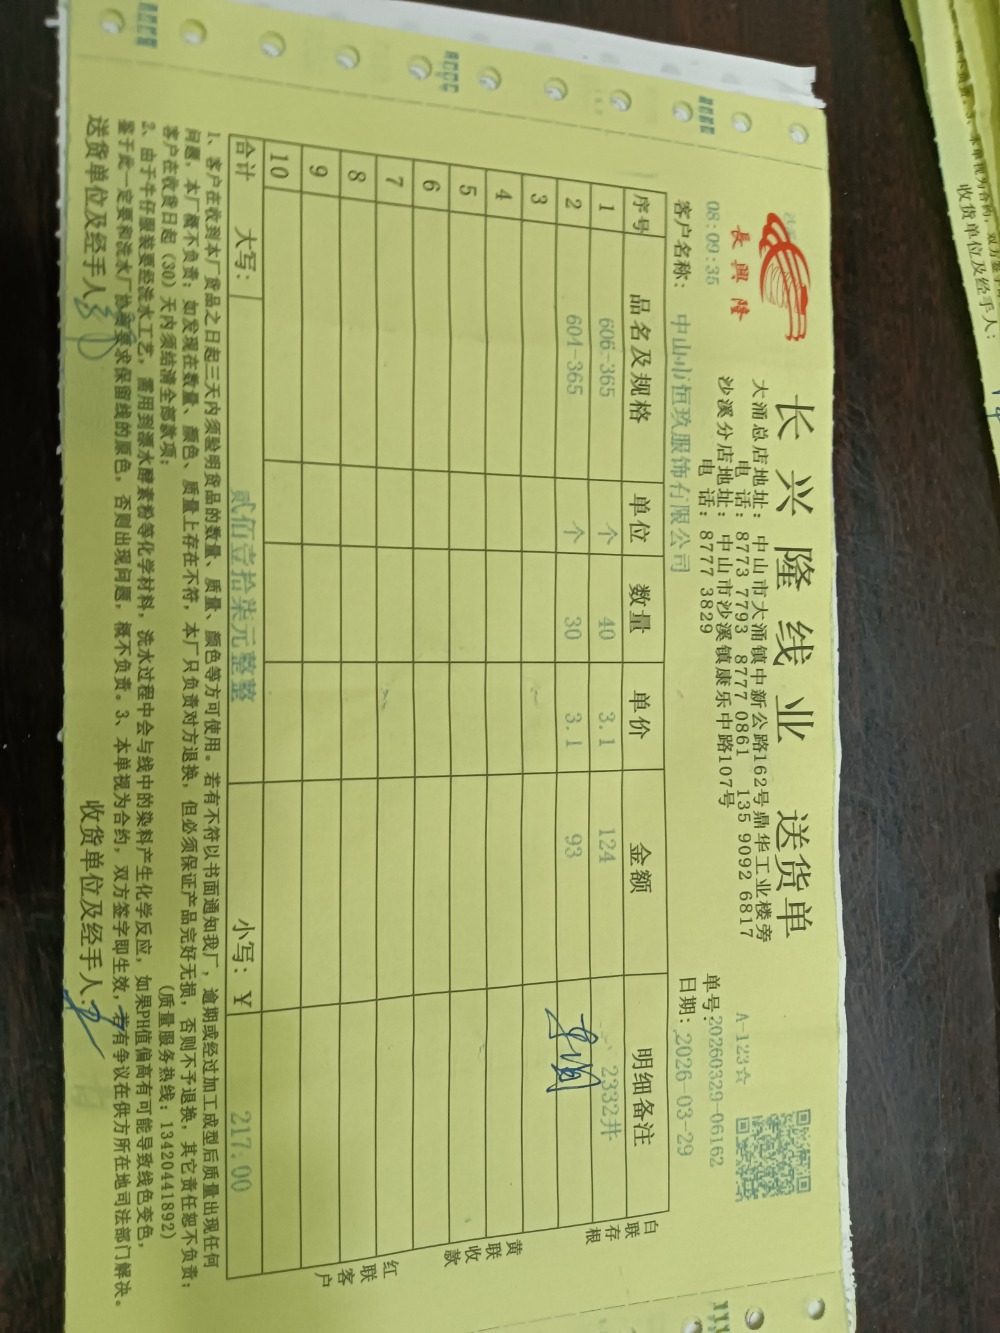 長興隆
长兴隆线业 送货单
大涌总店地址：中山市大涌镇中新公路162号鼎华工业楼旁
电话：8773 7793 8777 0861 135 9092 6817
沙溪分店地址：中山市沙溪镇康乐中路107号
电话：8777 3829
A-123☆
单号：20260329-06162
08:09:35
日期：2026-03-29
客户名称：中山市恒玖服饰有限公司
序号 品名及规格 单位 数量 单价 金额 明细备注
1 606-365 个 40 3.1 124 2332井
2 604-365 个 30 3.1 93
3
4
5
6
7
8
9
10
合计 大写：贰佰壹拾柒元整整 小写：￥ 217.00
白联存根
黄联收款
红联客户
1、客户在收到本厂货品之日起三天内须验明货品的数量、质量、颜色等方可使用。若有不符以书面通知我厂，逾期或经过加工成型后质量出现任何
问题，本厂概不负责；如发现在数量、颜色、质量上存在不符，本厂只负责对方退换，但必须保证产品完好无损，否则不予退换，其它责任恕不负责；
客户在收货日起（30）天内须结清全部款项；
（质量服务热线：13420441892）
2、由于牛仔服装要经洗水工艺，需用到漂水酵素粉等化学材料，洗水过程中会与线中的染料产生化学反应，如果PH值偏高有可能导致线色变色，
鉴于此一定要和洗水厂协商要求保留线的原色，否则出现问题，概不负责。3、本单视为合约，双方签字即生效，若有争议在供方所在地司法部门解决。
送货单位及经手人：
收货单位及经手人：
收货单位及经手人：